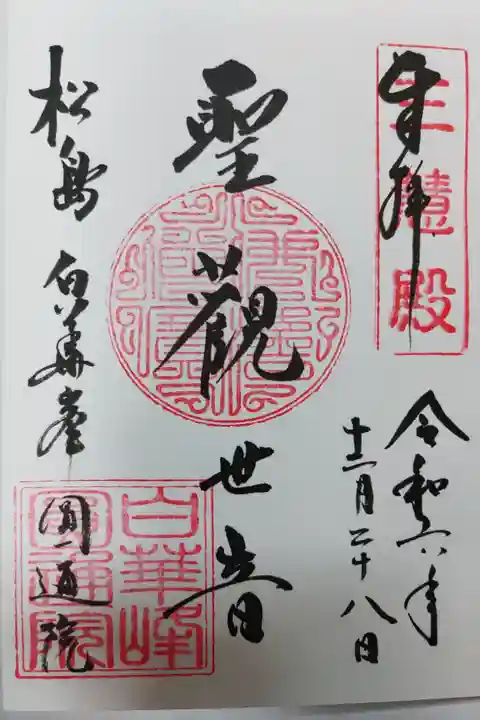 奉拝
三慧殿
令和六年
十二月二十八日
聖觀世音
松島 白華峯 圓通院
白華峰
圓通院